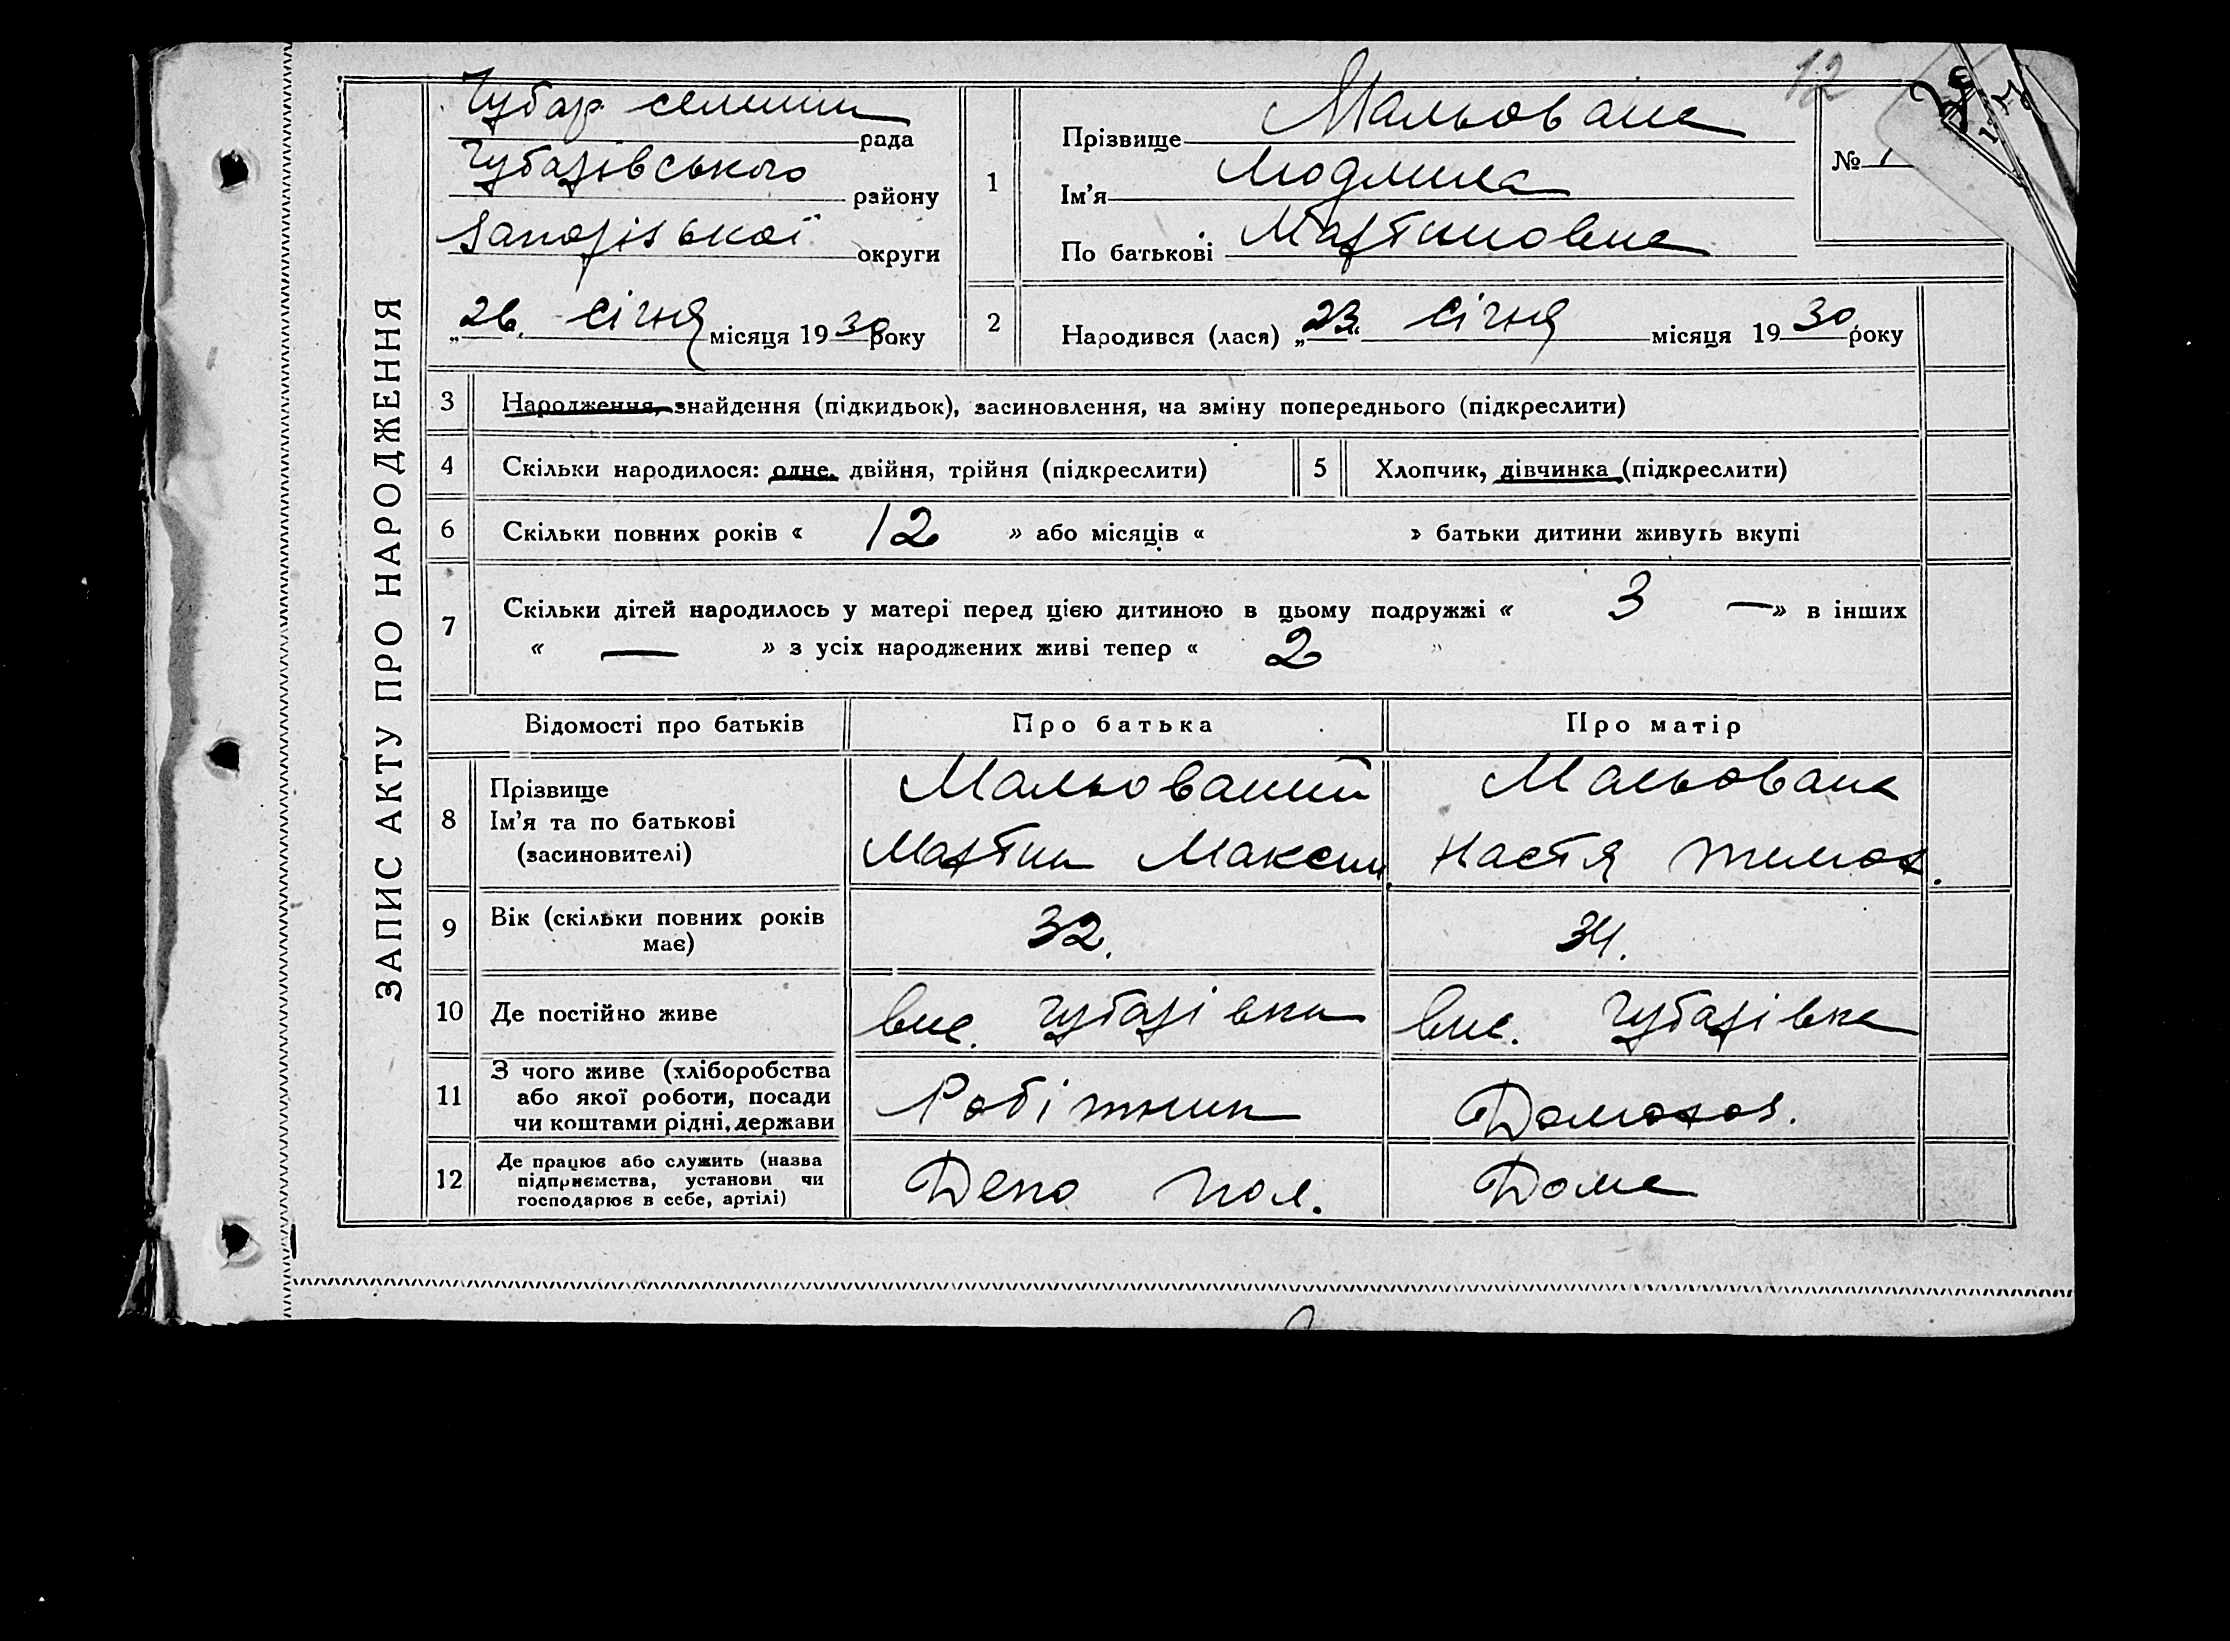 12
ЗАПИС АКТУ ПРО НАРОДЖЕННЯ
Чубар селищн рада
Чубарівського району
Запорізької округи
„26" січня місяця 1930 року
1
Прізвище Мальована
Ім'я Людмила
По батькові Мартиновна
№
2
Народився (лася) „23" січня місяця 1930 року
3 Народження, знайдення (підкидьок), засиновлення, на зміну попереднього (підкреслити)
4 Скільки народилося: одне, двійня, трійня (підкреслити)
5 Хлопчик, дівчинка (підкреслити)
6 Скільки повних років « 12 » або місяців « » батьки дитини живуть вкупі
7 Скільки дітей народилось у матері перед цією дитиною в цьому подружжі « 3 —» в інших
« — » з усіх народжених живі тепер « 2 »
Відомості про батьків Про батька Про матір
8 Прізвище
Ім'я та по батькові
(засиновителі)
Мальований
Мартин Максим
Мальована
Настя Тимох.
9 Вік (скільки повних років
має)
32. 34.
10 Де постійно живе
вис. Чубарівка вис. Чубарівка
11 З чого живе (хліборобства
або якої роботи, посади
чи коштами рідні, держави
Робітник Домогос.
12 Де працює або служить (назва
підприємства, установи чи
господарює в себе, артілі)
Депо Пол. Дома